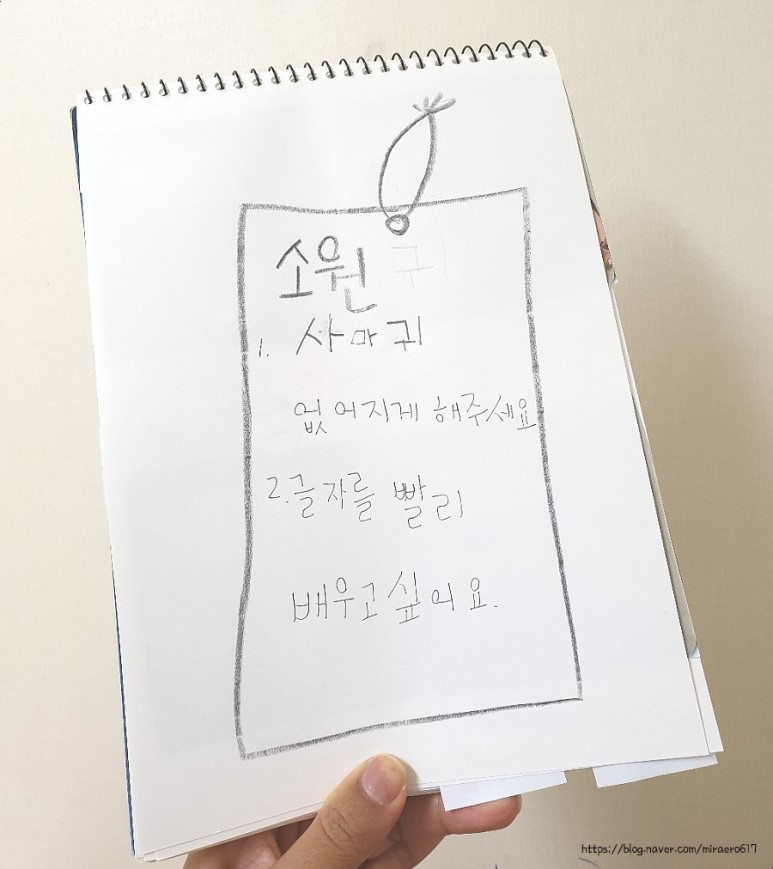 소원
1. 사마귀
없어지게 해주세요
2. 글자를 빨리
배우고싶어요.
https://blog.naver.com/miraero617